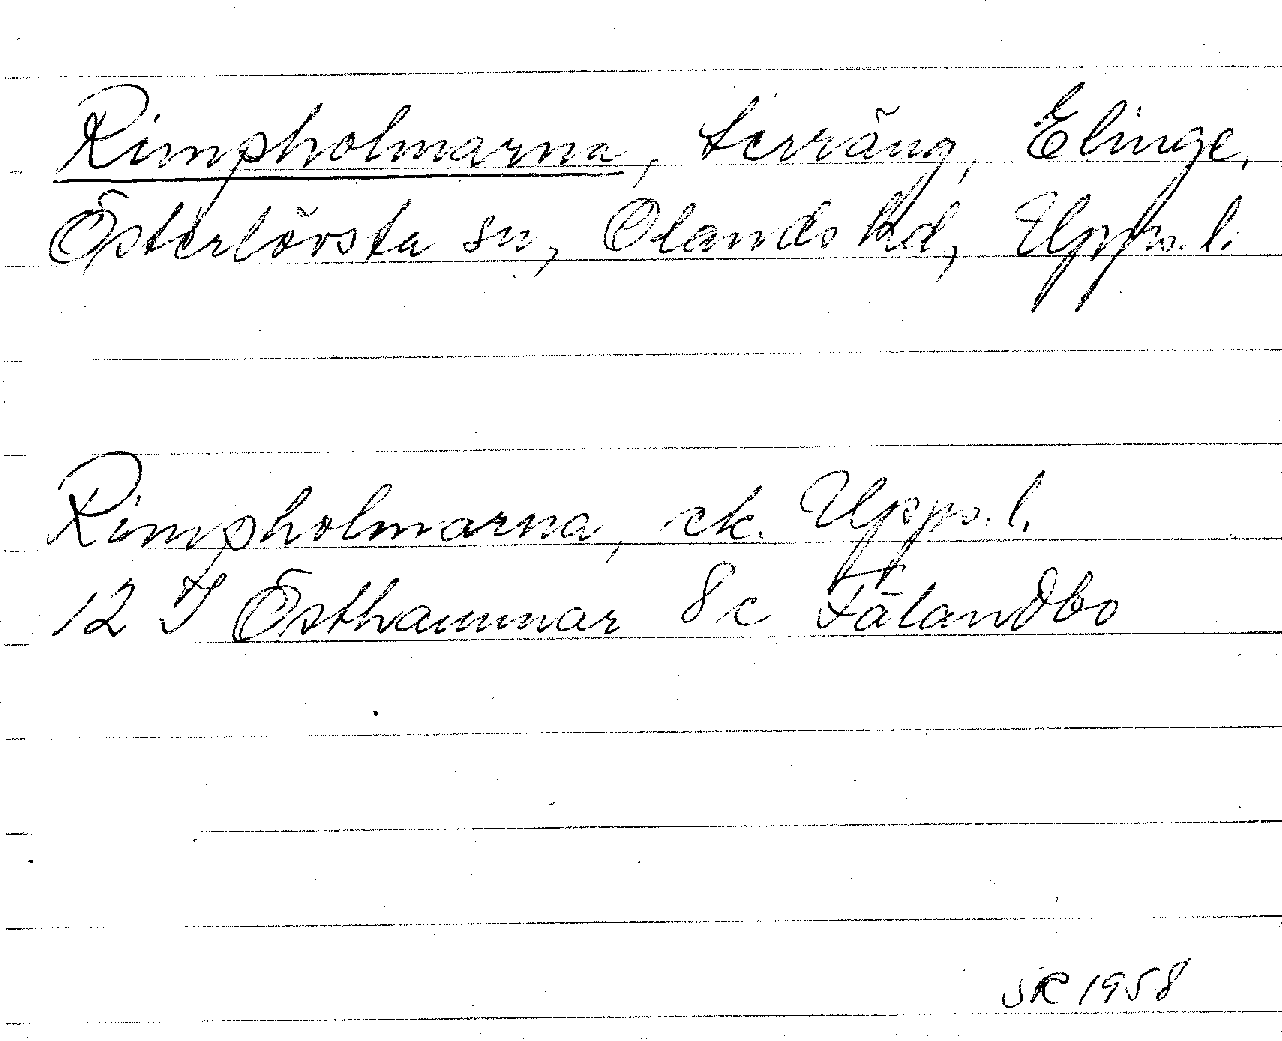 Rimpholmarna, terräng, Elinge,
Österlövsta sn, Olands hd, Upps. l.
Rimpholmarna, ek. Upps. l.
12 I Östhammar 8 c Fälandbo
SR 1958